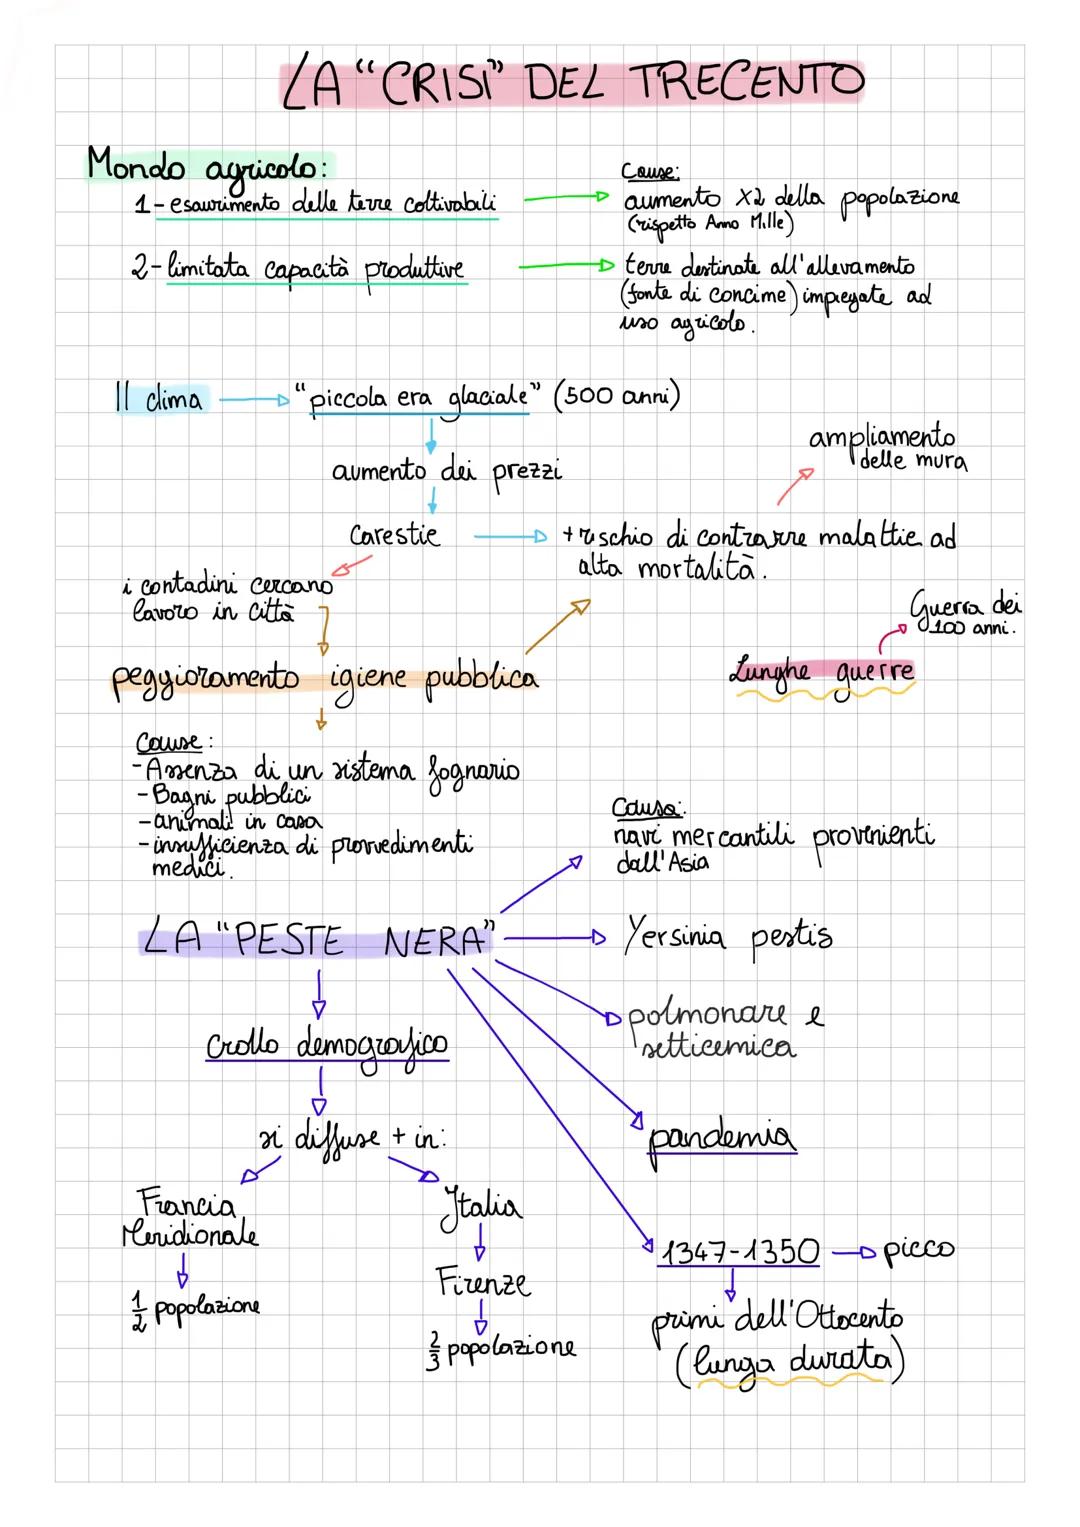 LA "CRISI" DEL TRECENTO
Mondo agricolo:
1- esaurimento delle terre coltivabili
Cause:
aumento x2 della popolazione
(rispetto Anno Mille)
2- limitata capacità produttive
terre destinate all'allevamento
(fonte di concime) impiegate ad
uso agricolo.
Il clima
"piccola era glaciale" (500 anni)
aumento dei prezzi
ampliamento
delle mura
Carestie
+ rischio di contrarre malattie ad
alta mortalità.
i contadini cercano
lavoro in città
Guerra dei
100 anni.
peggioramento igiene pubblica
Lunghe guerre
Cause:
- Assenza di un sistema fognario
- Bagni pubblici
- animali in casa
- insufficienza di provvedimenti
medici.
Causa:
navi mercantili provenienti
dall'Asia
LA "PESTE NERA"
Yersinia pestis
polmonare e
setticemica
crollo demografico
pandemia
si diffuse + in:
Francia
Meridionale
1/2 popolazione
Italia
Firenze
2/3 popolazione
1347-1350
picco
primi dell'Ottocento
(lunga durata)